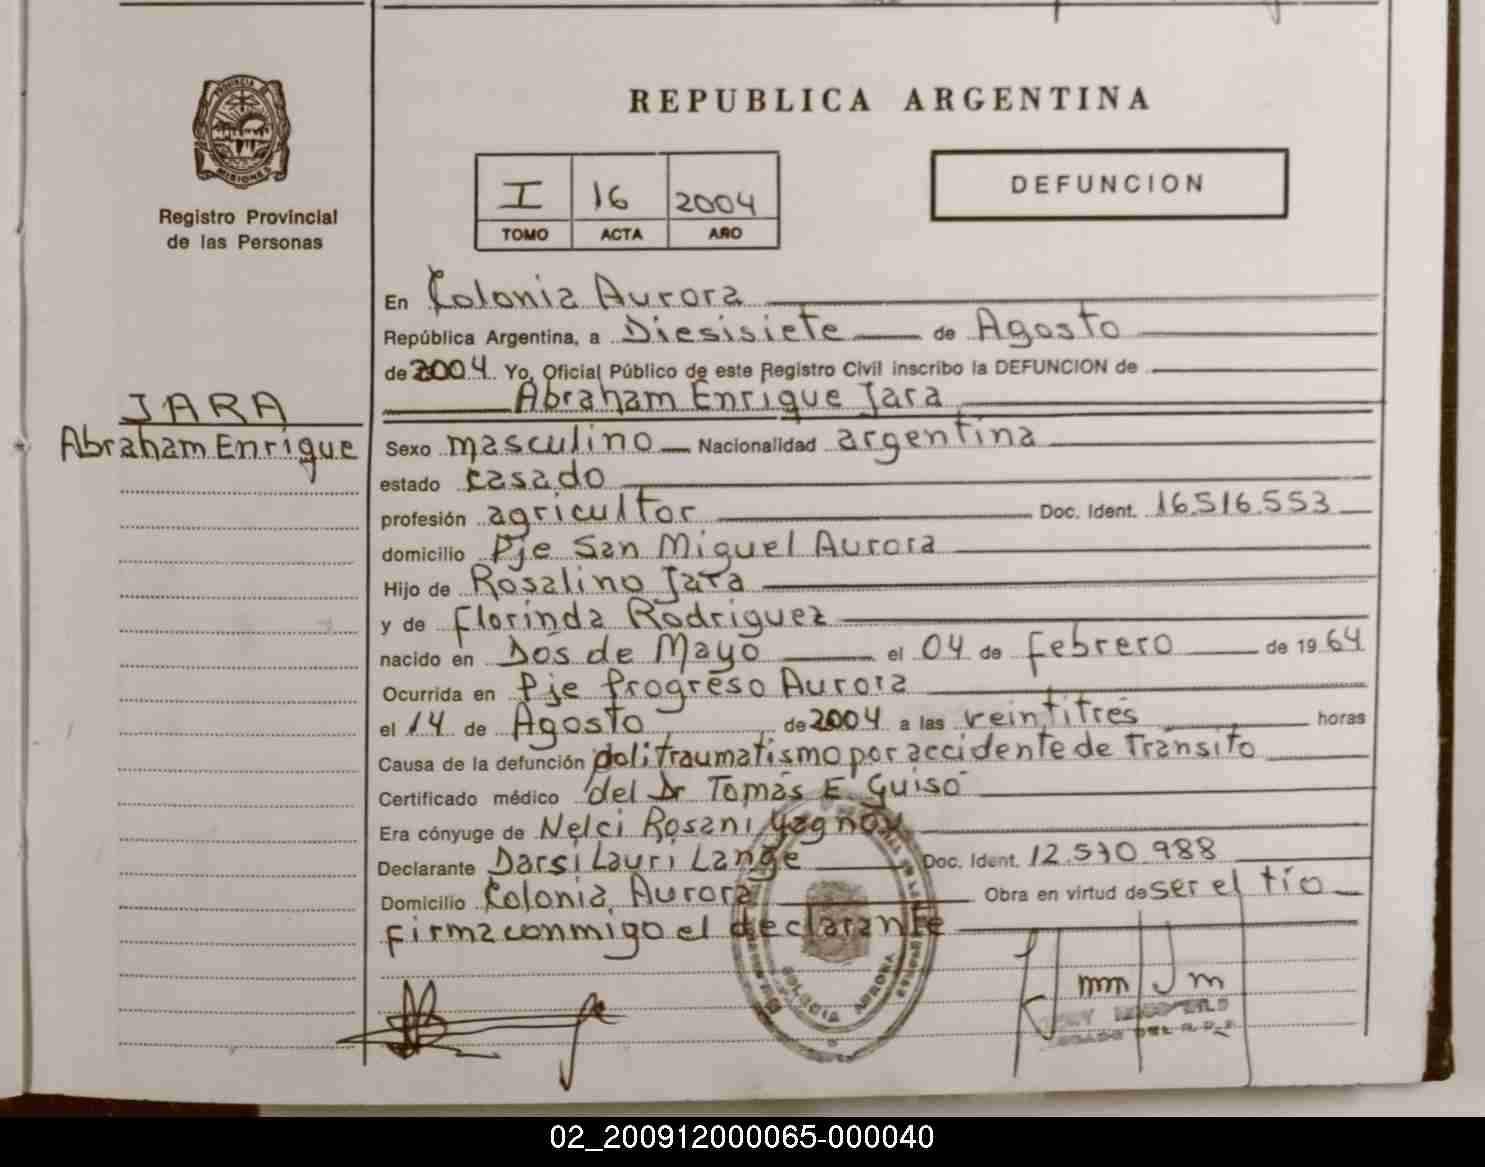 REPUBLICA ARGENTINA
PROVINCIA DE
MISIONES
Registro Provincial
de las Personas
I 16 2004
TOMO ACTA AÑO
DEFUNCION
En Colonia Aurora
República Argentina, a Diesisiete de Agosto
de 2004 Yo, Oficial Público de este Registro Civil inscribo la DEFUNCION de
Abraham Enrique Jara
JARA
Abraham Enrique
Sexo masculino Nacionalidad argentina
estado casado
profesión agricultor Doc. Ident. 16.516.553
domicilio Pje San Miguel Aurora
Hijo de Rosalino Jara
y de Florinda Rodriguez
nacido en Dos de Mayo el 04 de febrero de 1964
Ocurrida en Pje Progreso Aurora
el 14 de Agosto de 2004 a las veintitrés horas
Causa de la defunción politraumatismo por accidente de transito
Certificado médico del Dr Tomás E. Guiso
Era cónyuge de Nelci Rosani
Declarante Darsi Lauri Lange Doc. Ident. 12.570.988
Domicilio Colonia Aurora Obra en virtud de ser el tío
firma conmigo el declarante
COLONIA AURORA
02_200912000065-000040